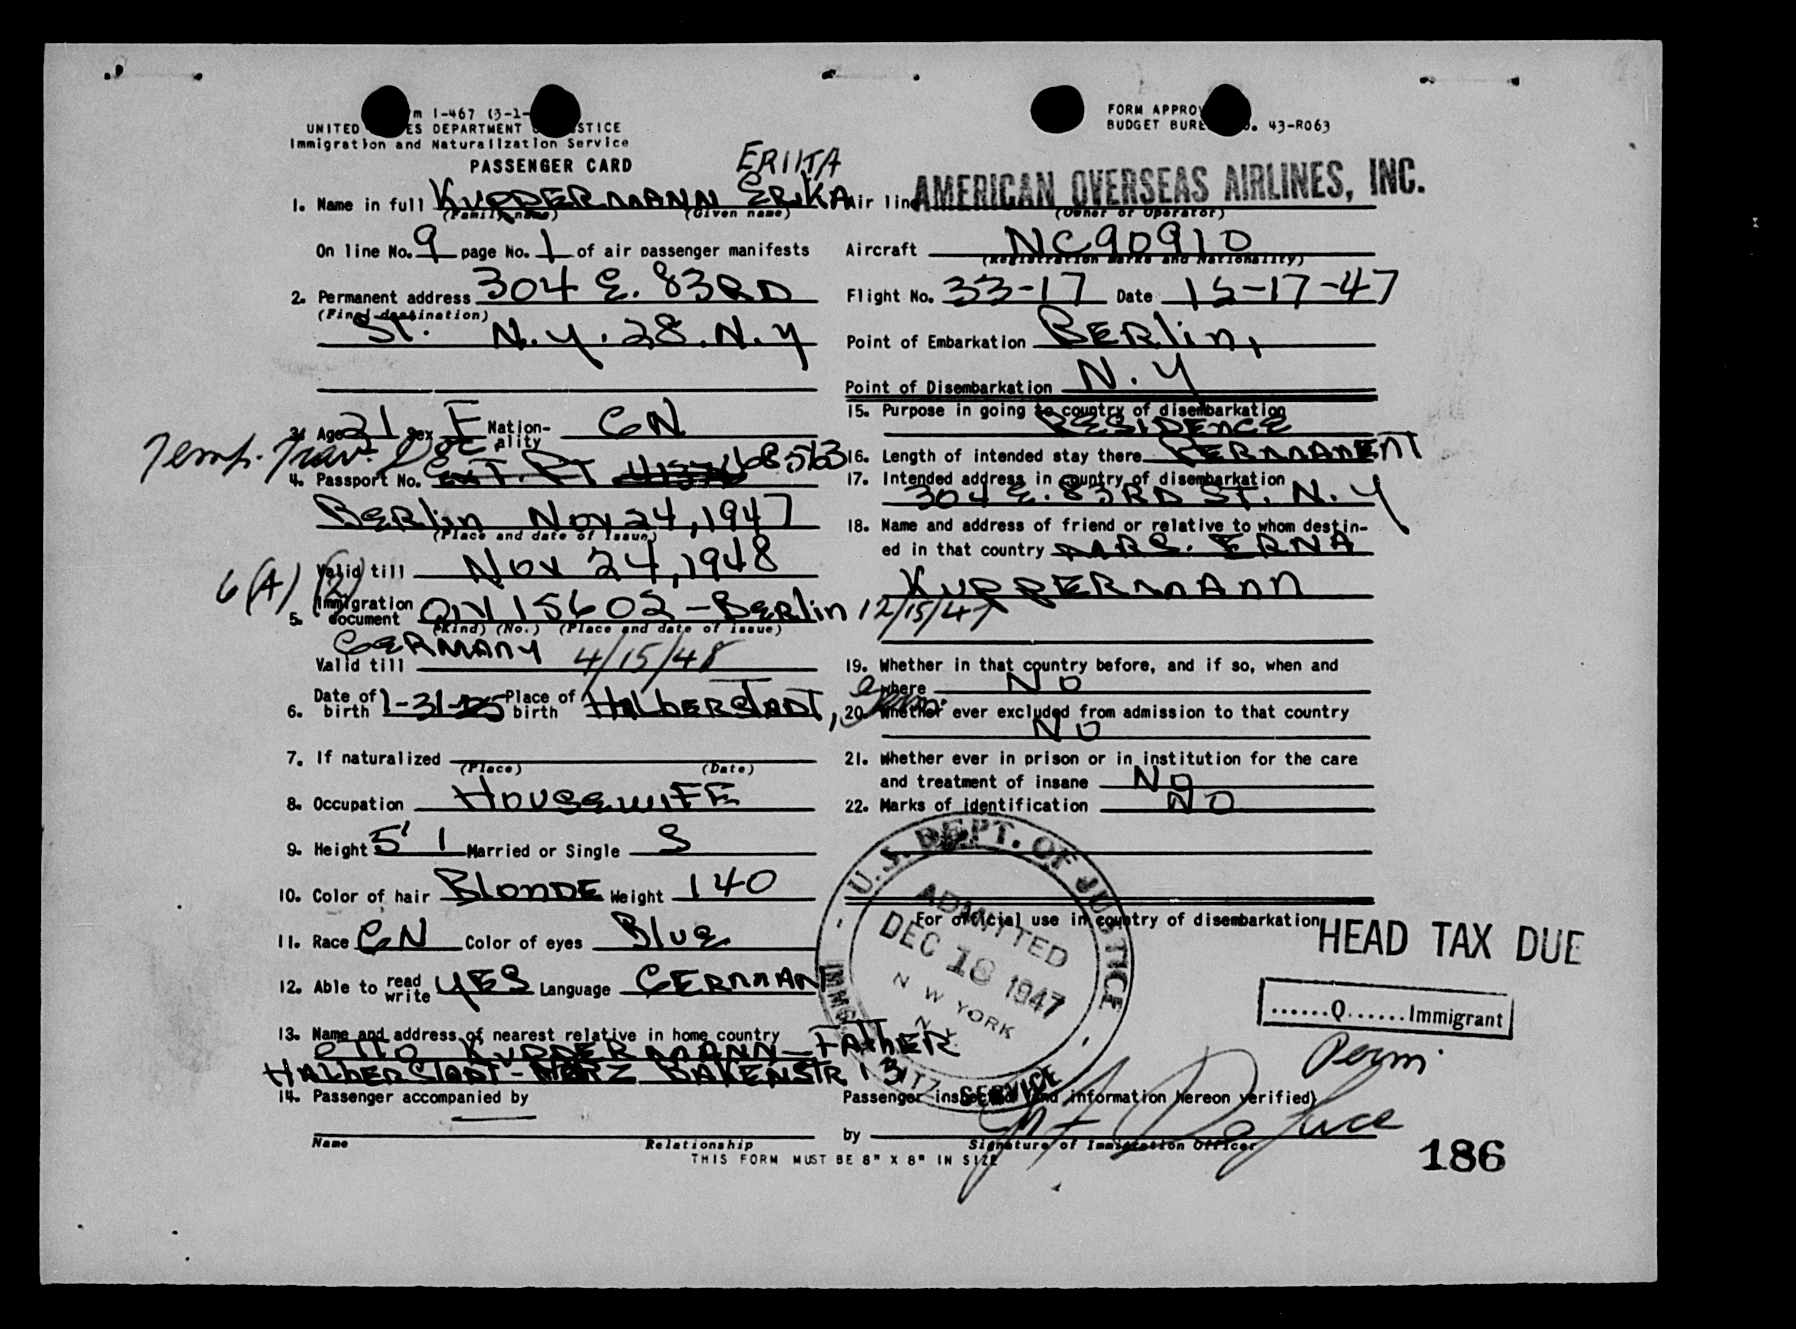 m I-467 (3-1-
UNITED ES DEPARTMENT STICE
Immigration and Naturalization Service
PASSENGER CARD
FORM APPRO
BUDGET BURE O. 43-R063
1. Name in full KUPPERMANN ERIKA
(Family name) (Given name)
On line No. 9 page No. 1 of air passenger manifests
2. Permanent address 304 E. 83RD
(Final destination)
St. N.Y. 28. N.Y
3. Age 21 Sex F Nation-ality GN
Temp. Trav. Doc
4. Passport No. 68563
Berlin Nov 24, 1947
(Place and date of issue)
Valid till Nov 24, 1948
6(A) (2)
5. Immigration document QIV 15602 - Berlin 12/15/47
(Kind) (No.) (Place and date of issue)
GERMANY
Valid till 4/15/48
6. Date of birth 1-31-25 Place of birth HALBERSTADT, Germ.
7. If naturalized
(Place) (Date)
8. Occupation HOUSEWIFE
9. Height 5' 1 Married or Single S
10. Color of hair BLONDE Weight 140
11. Race GN Color of eyes Blue
12. Able to read write YES Language GERMAN
13. Name and address of nearest relative in home country
OTTO KUPPERMANN - FATHER
HALBERSTADT - BAKENSTR 13
14. Passenger accompanied by
Name Relationship
THIS FORM MUST BE 8" X 8" IN SIZE
Air line AMERICAN OVERSEAS AIRLINES, INC.
(Owner or Operator)
Aircraft NC90910
(Registration marks and Nationality)
Flight No. 33-17 Date 12-17-47
Point of Embarkation BERlin,
Point of Disembarkation N.Y
15. Purpose in going to country of disembarkation
RESIDENCE
16. Length of intended stay there PERMANENT
17. Intended address in country of disembarkation
304 E. 83RD ST. N.Y
18. Name and address of friend or relative to whom destin-
ed in that country MRS. ERNA
KUPPERMANN
19. Whether in that country before, and if so, when and
where NO
20. Whether ever excluded from admission to that country
NO
21. Whether ever in prison or in institution for the care
and treatment of insane NO
22. Marks of identification NO
U.S. DEPT. OF JUSTICE
ADMITTED
DEC 18 1947
N W YORK
N.Y.
SERVICE
For official use in country of disembarkation
HEAD TAX DUE
......Q......Immigrant
Perm.
Passenger inspected (and information hereon verified)
by
Signature of Immigration Officer
186